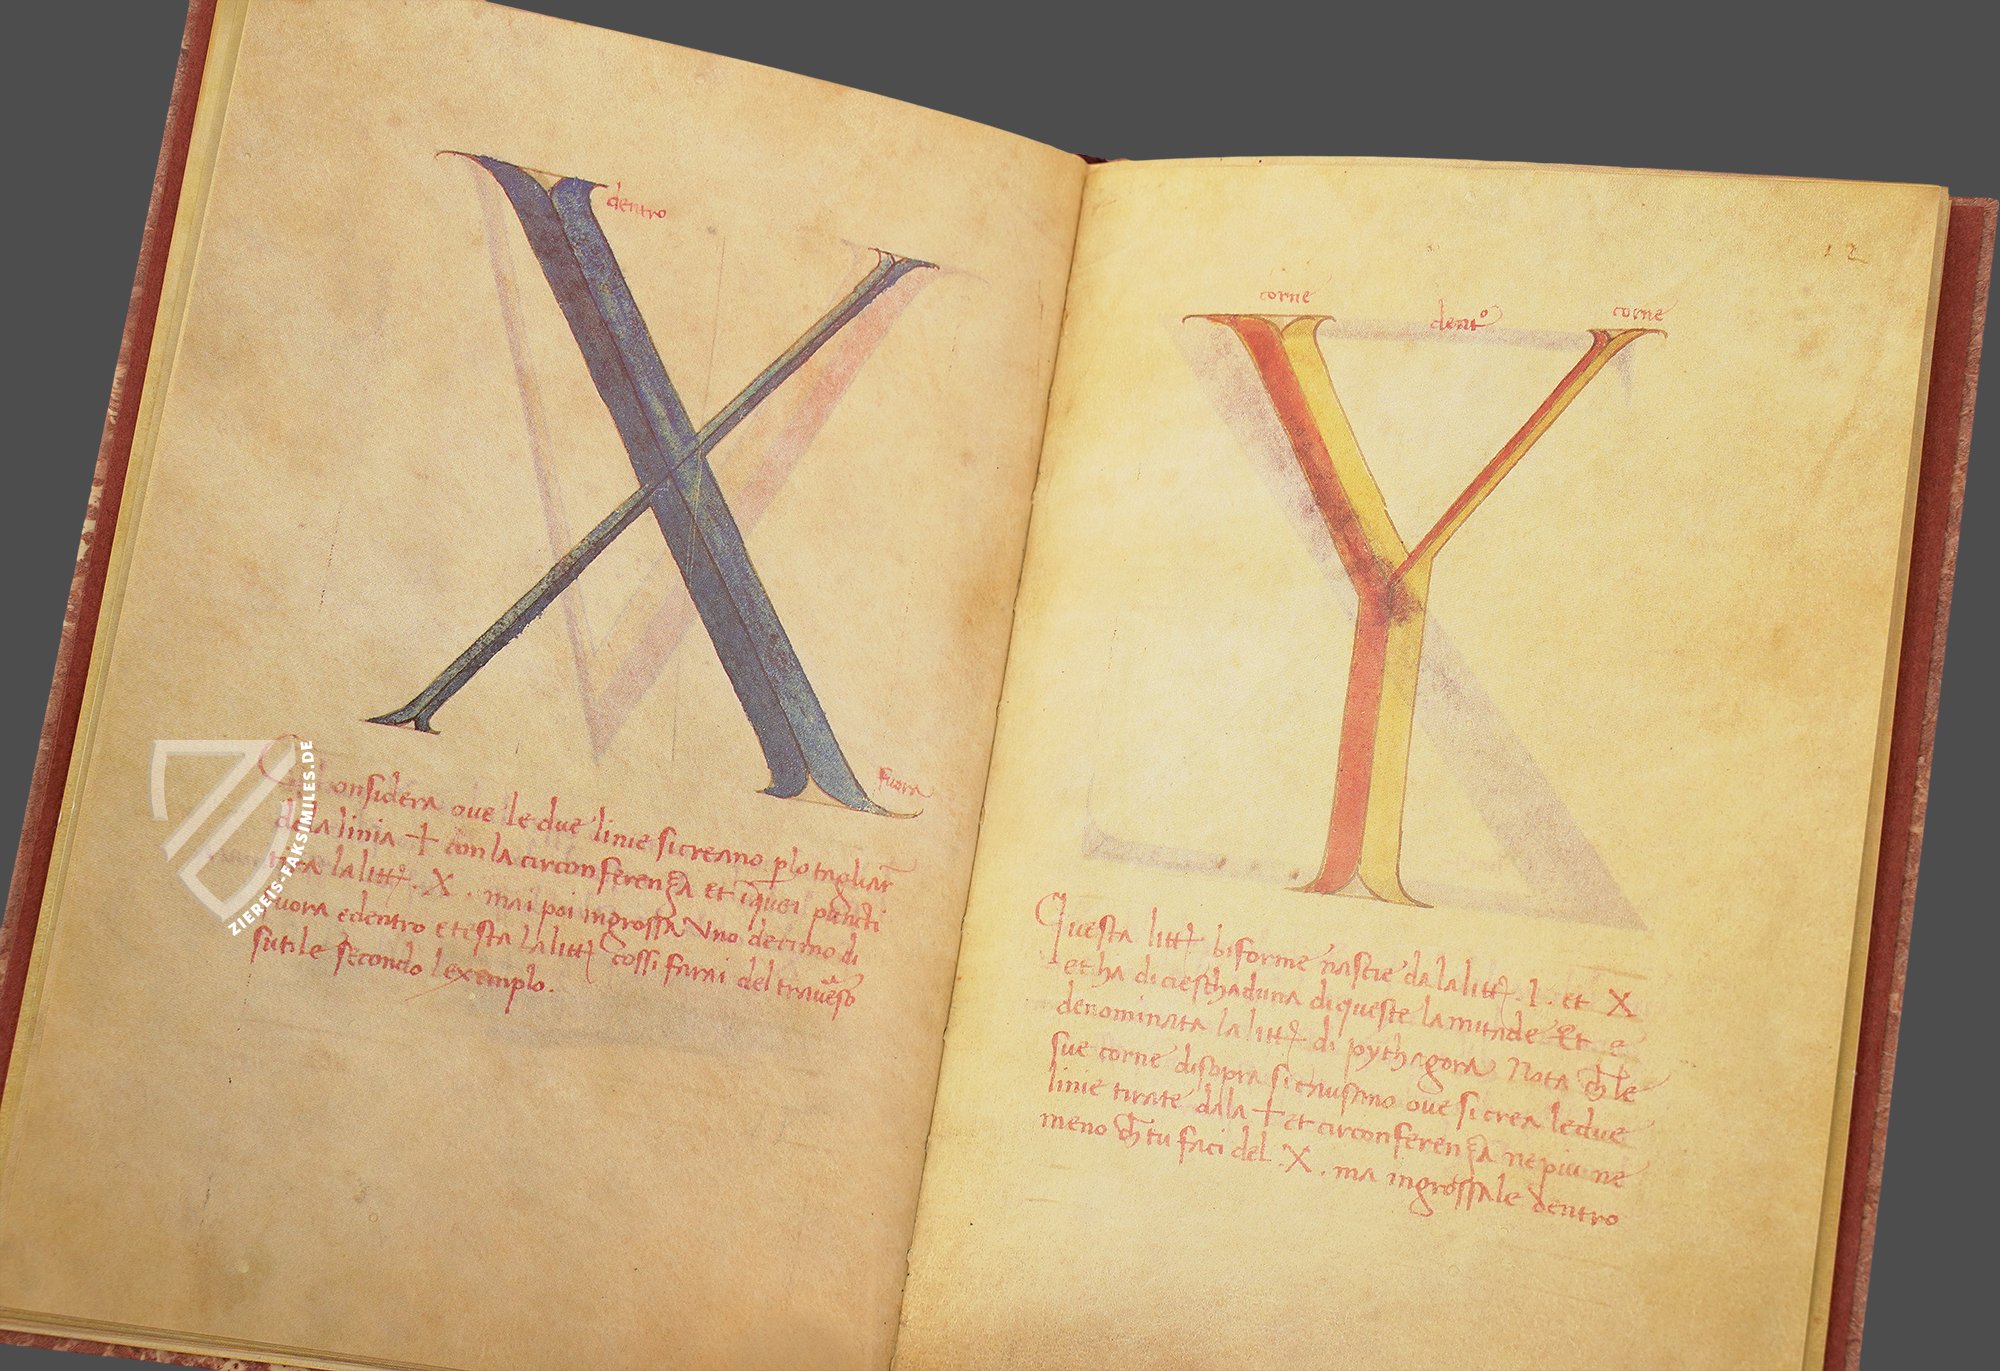 dentro
X
fuora
Considera oue le due linie si creano p lo tagliar
dela linia + con la circonferenza et i quei puncti
tira la litt. X. mai poi ingrossa Vno decimo di
fuora e dentro e testa la litt cossi farai del trauerso
sutile secondo lexemplo.
ZIEREIS-FAKSIMILES.DE
12
corne dentº corne
Y
Questa litt biforme nascie da la litt. I. et X
et ha di cieschaduna di queste la mitade Et e
denominata la litt di pythagora Nota ch le
sue corne disopra si chausano oue si crea le due
linie tirate dala + et circonferenza ne piu ne
meno ch tu faci del .X. ma ingrossale dentro